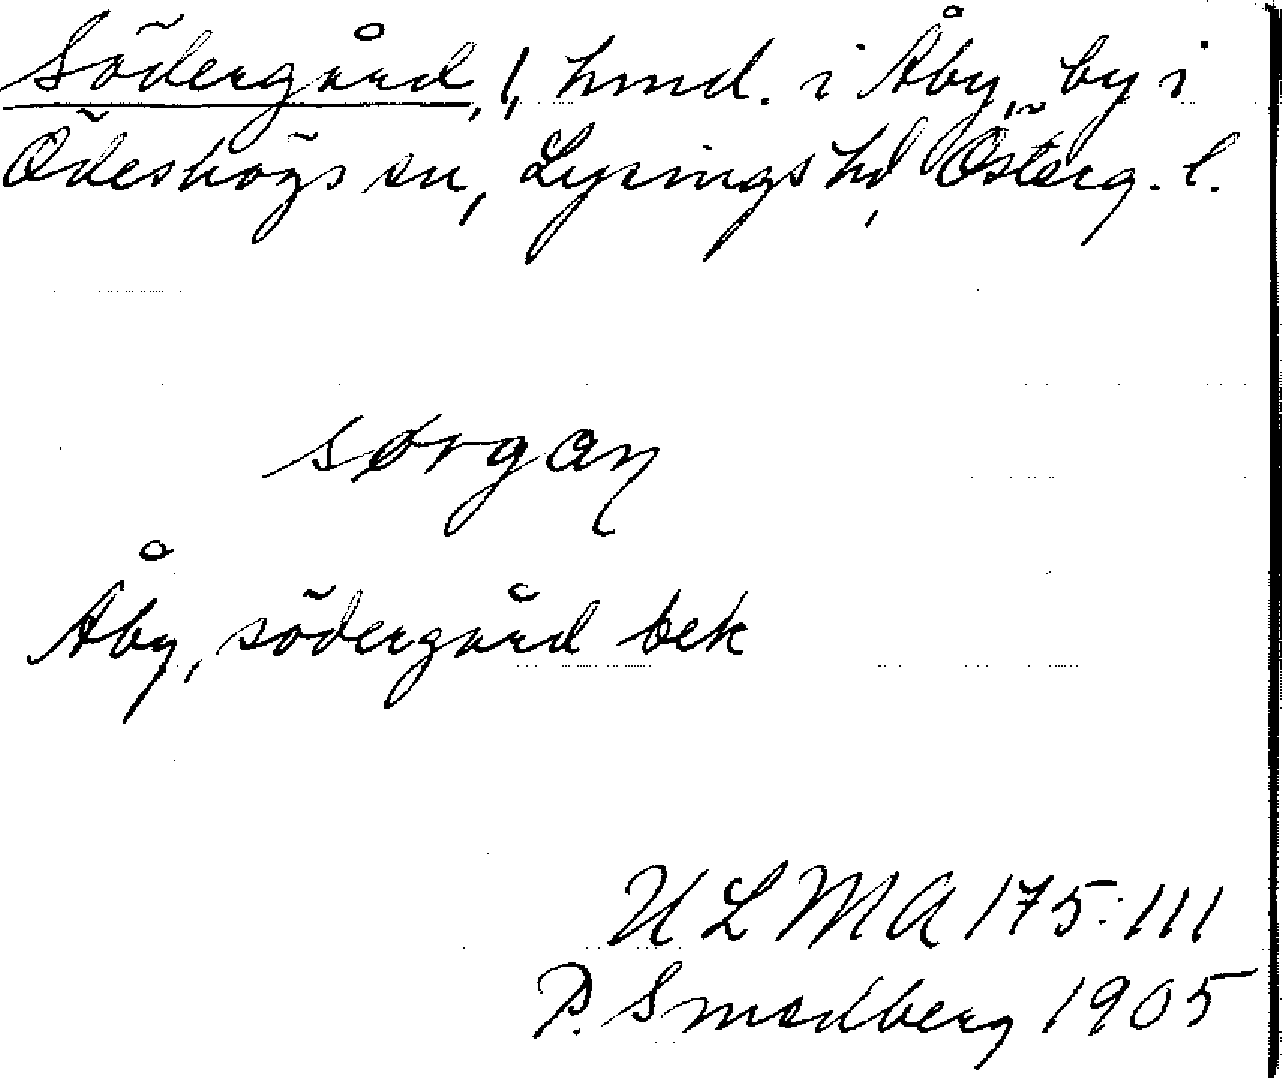 Södergård, !, hmd. i Åby, by i
Ödeshögs sn, Lysings hd, Österg. l.
sørgaɳ
Åby, södergård bek
ULMA 175:111
P. Smedberg 1905